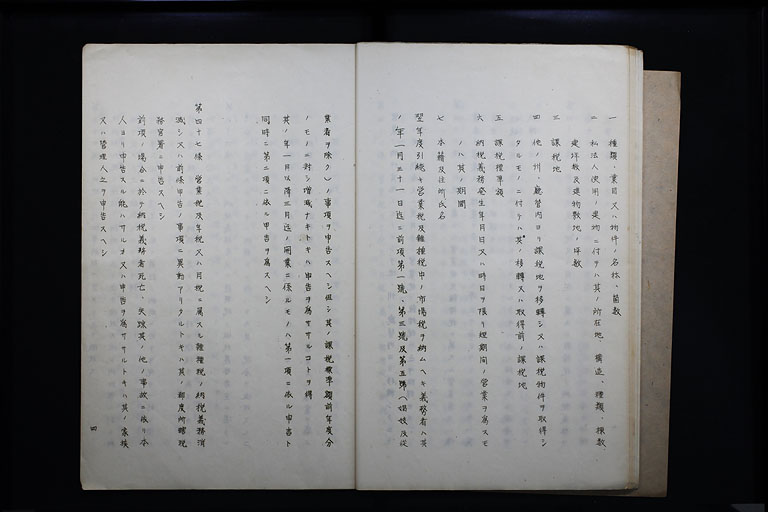 一 種類、業目又ハ物件ノ名称、箇数
二 私法人使用ノ建物ニ付テハ其ノ所在地、構造、種類、棟数、
建坪数及建物敷地ノ坪数
三 課税地
四 他ノ州、廳管内ヨリ課税地ヲ移轉シ又ハ課税物件ヲ取得シ
タルモノニ付テハ其ノ移轉又ハ取得前ノ課税地
五 課税標準額
六 納税義務発生年月日又ハ時日ヲ限リ短期間ノ営業ヲ為スモ
ノハ其ノ期間
七 本籍及住所氏名
翌年度引続キ営業税及雜種税中ノ市場税ヲ納ムヘキ義務者ハ其
ノ年一月三十一日迄ニ前項第一號、第三號及第五號(娼妓及従
業者ヲ除ク)ノ事項ヲ申告スヘシ但シ其ノ課税標準額前年度分
ノモノニ対シ増減ナキトキハ申告ヲ為ササルコトヲ得
其ノ年一月以降三月迄ノ開業ニ係ルモノハ第一項ニ依ル申告ト
同時ニ第二項ニ依ル申告ヲ為スヘシ
第四十七條 営業税及年税又ハ月税ニ属スル雜種税ノ納税義務消
滅シ又ハ前條申告ノ事項ニ異動アリタルトキハ其ノ都度所轄税
務官署ニ申告スヘシ
前項ノ場合ニ於テ納税義務者死亡、失踪其ノ他ノ事故ニ依リ本
人ヨリ申告スル能ハサルカ又ハ申告ヲ為ササルトキハ其ノ家族
又ハ管理人之ヲ申告スヘシ
四